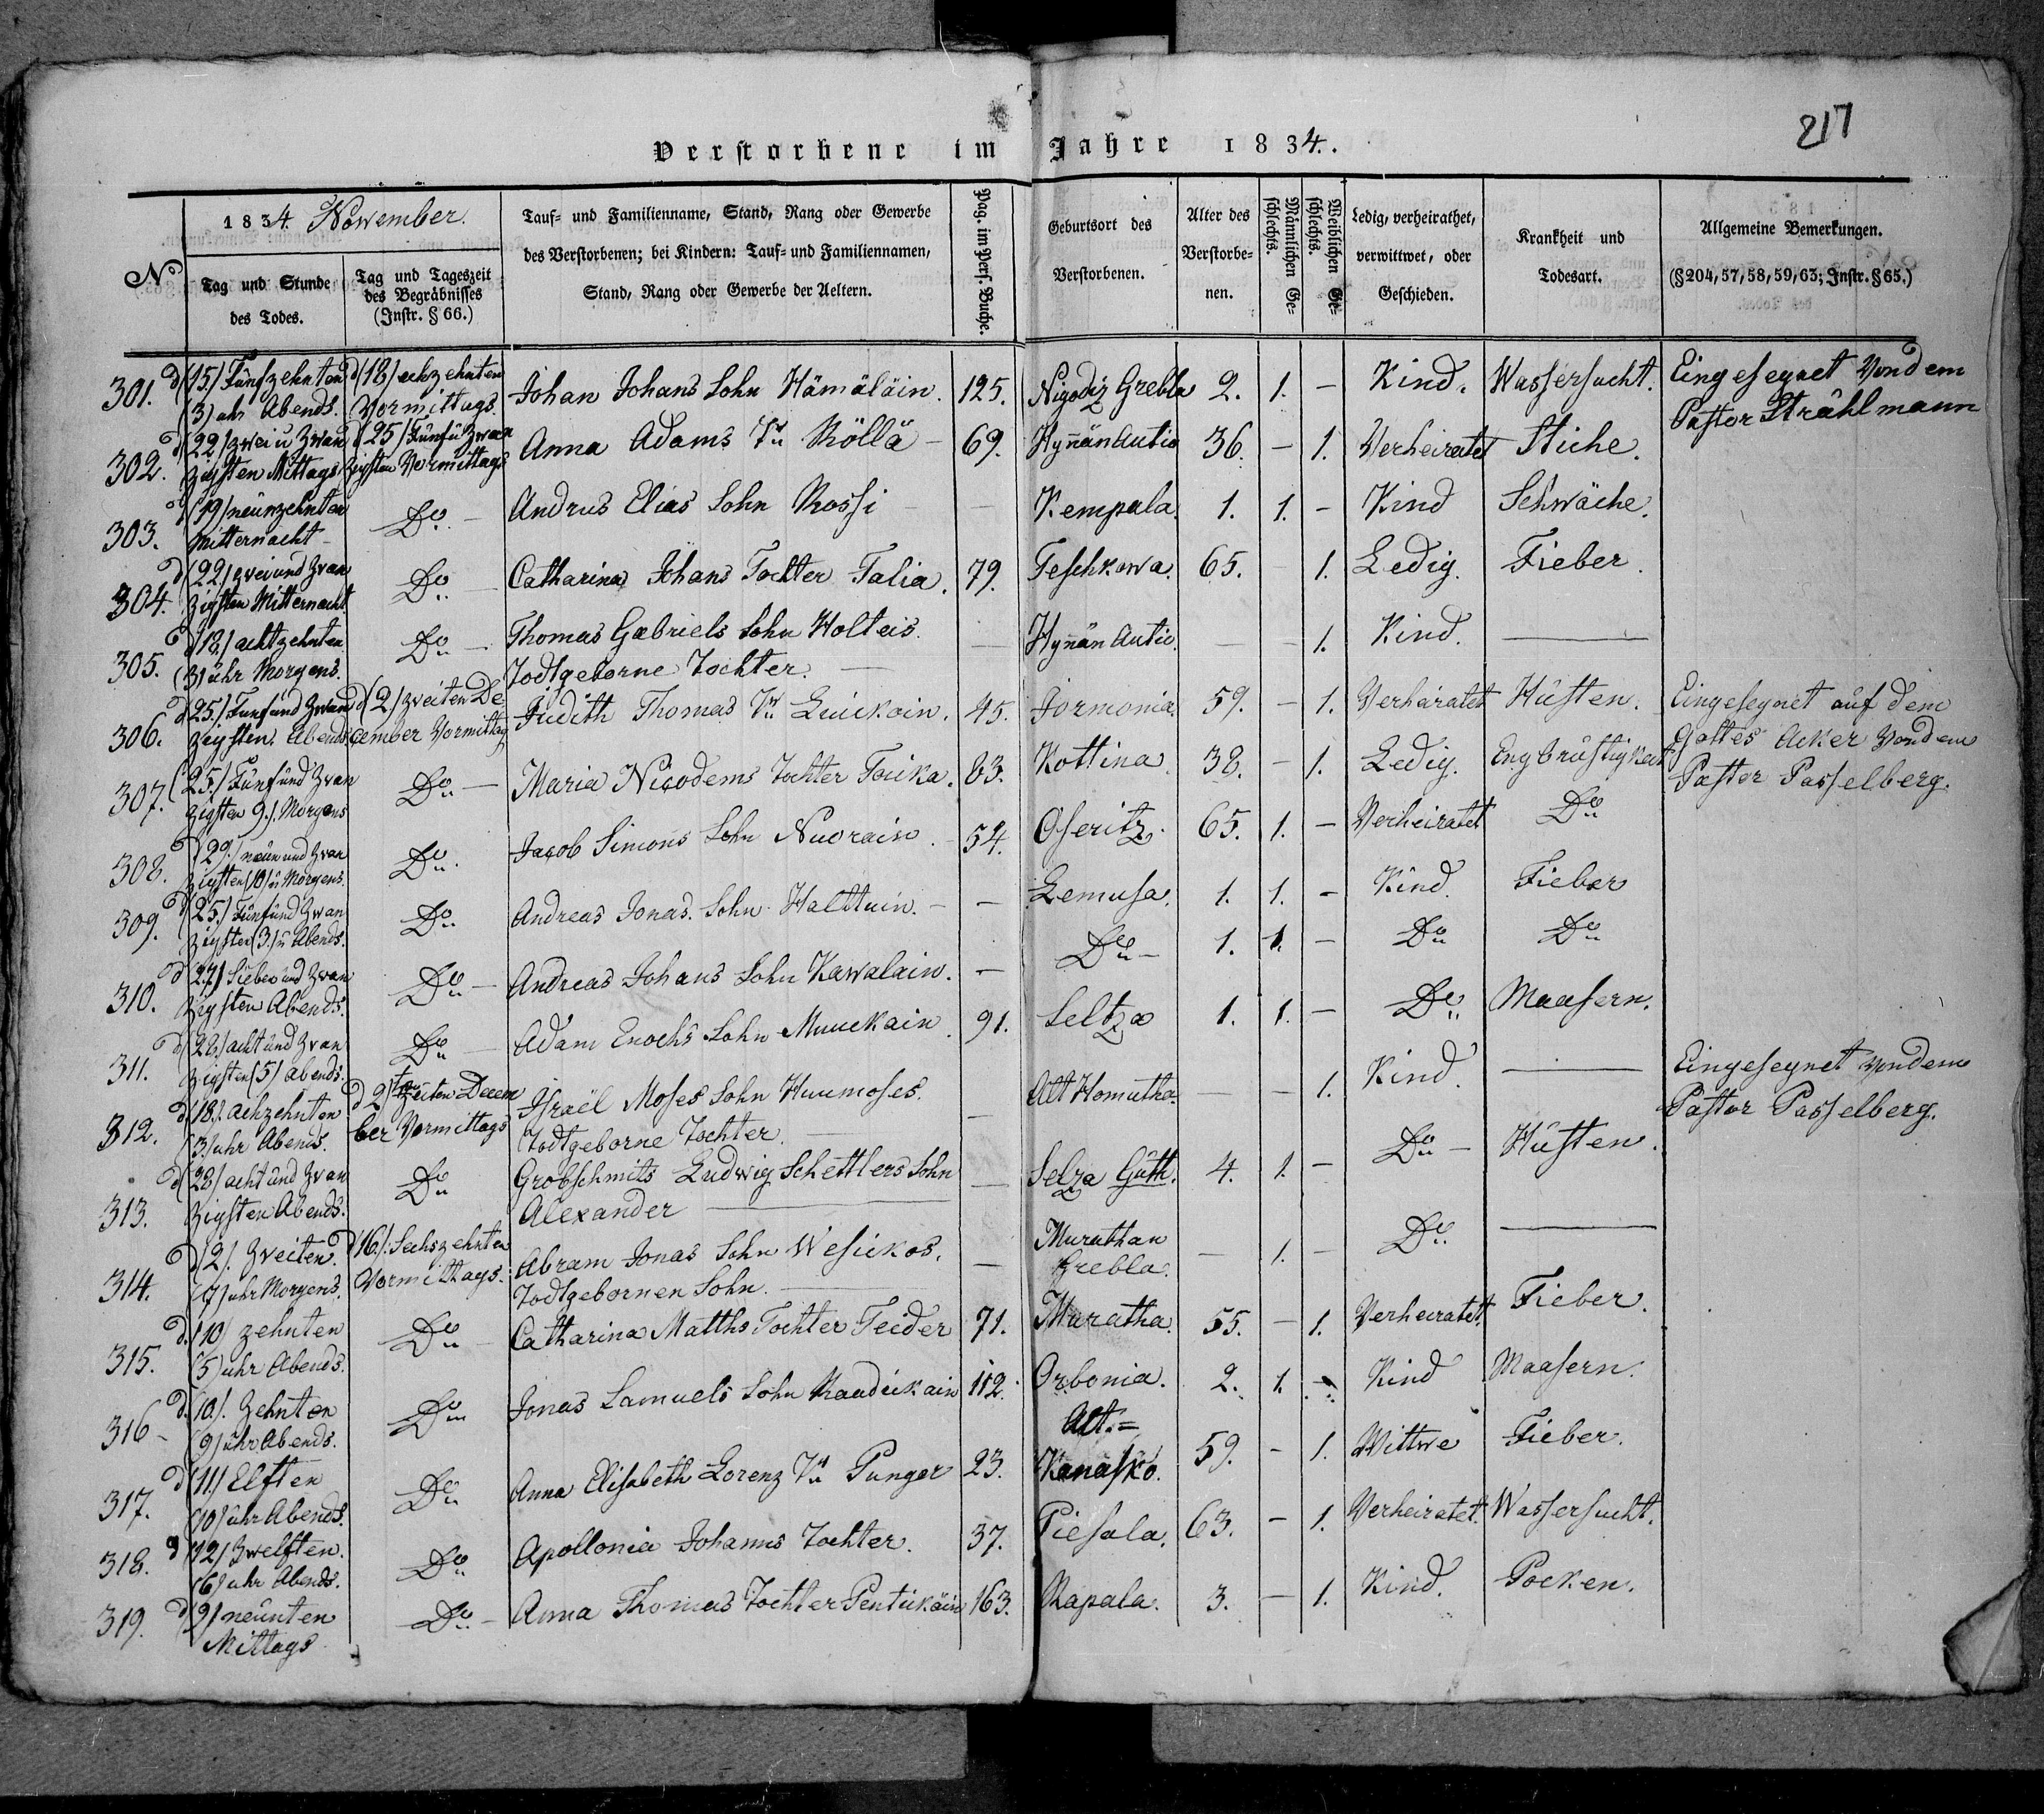 217
Verstorbene im Jahre 1834.
No
1834. November.
Tag und Stunde des Todes.
Tag und Tageszeit des Begräbnisses (Instr. § 66.)
Tauf- und Familienname, Stand, Rang oder Gewerbe des Verstorbenen; bei Kindern: Tauf- und Familiennamen, Stand, Rang oder Gewerbe der Aeltern.
Pag. im Pers. Buche.
Geburtsort des Verstorbenen.
Alter des Verstorbenen.
Männlichen Geschlechts.
Weiblichen Geschlechts.
Ledig, verheirathet, verwittwet, oder Geschieden.
Krankheit und Todesart.
Allgemeine Bemerkungen. (§ 204, 57, 58, 59, 63; Instr. § 65.)
301. d (15.) Fünfzehnten (3) uhr Abends. d (18) achzehnten Vormittags. Johan Johans Sohn Hämäläin. 125. Nigodiz Grebla 2. 1. – Kind. Wassersucht. Eingesegnet Von dem Pastor Strählmann
302. d (22) zwei ü Zwanzigsten Mittags d 25) Fünf ü Zwanzigsten Vormittags Anna Adams Tr Röllä – 69. Hynnän Autio 36. – 1. Verheiratet Stiche.
303. d (19) neünzehnten Mitternacht – Do – Andrus Elias Sohn Rossi – – Kempala. 1. 1. – Kind Schwäche.
304. d (22.) zwei und Zwanzigsten Mitternacht Do – Catharina Johans Tochter Talia. 79. Teschkowa. 65. – 1. Ledig. Fieber.
305. d (18.) achtzehnten (3) ühr Morgens. Do – Thomas Gabriels Sohn Holteis. Todtgeborne Tochter. – – Hynnän Autio. – – 1. Kind. –
306. d (25.) Fünf und Zwanzigsten Abends d (2.) zweiten December Vormittag Judith Thomas Tr Luickain. 45. Jormonia. 59. – 1. Verheiratet Hüsten. Eingesegnet auf dem Gottes Acker Von dem Pastor Passelberg.
307. (25.) Fünf und Zwanzigsten 9.). Morgens Do – Maria Nicodems Tochter Tocka. 83. Kottina. 38. – 1. Ledig. Engbrüstigkeit
308. d (29.) neün und Zwanzigsten (10) ü Morgens. Do. Jacob Simons Sohn Nuorain. 54. Oseritz. 65. 1. – Verheiratet Do
309. d (25.) Fünf und Zwanzigsten (3.) ü Abends. Do Andreas Jonas. Sohn Halttuin. – – Lemusa. 1. 1. – Kind. Fieber
310. d (27.) Sieben und Zwanzigsten Abends. Do – Andreas Johans Sohn Kawalain. – Do – 1. 1. – Do Do
311. d (28.) acht und Zwanzigsten (5) abends. Do – Adam Enochs Sohn Muuckain 91. Seltza 1. 1. – Do Maasern.
312. d (18.) achzehnten (3.) uhr Abends. d 2) zweiten December Vormittags Israël Moses Sohn Huumoses. Todtgeborne Tochter. – – Alt Homutha. – – 1. Kind. – Eingesegnet Von dem Pastor Passelberg.
313. d (28) acht und Zwanzigsten Abends. Do Grobschmits Ludwig Schettlers Sohn Alexander – – Selza Guth. 4. 1. – Do – Hüsten.
314. d (2). Zweiten. (7) uhr Morgens. d 16.). Sechszehnten Vormittags. Abram Jonas Sohn Wesickos. Todtgebornen Sohn. – – Murathan Grebla. – 1. – Do. –
315. d. (10) zehnten (5) uhr Abends. Do – Catharina Matths Tochter Teeder 71. Muratha. 55. – 1. Verheiratet. Fieber.
316 – d. (10.). Zehnten (9) ühr Abends. Do Jonas Samuels Sohn Kaudickain 112. Orbonia. 2. 1. – Kind Maasern.
317. d (11.) Elften (10) ühr Abends. Do Anna Elisabeth Lorenz Tr Punger 23. Alt.= Kanasko. 59. – 1. Wittwe Fieber.
318. d 12) Zwelften. (6) uhr Abends. Do Apollonia Johanns Tochter. 37. Piesala. 63. – 1. Verheiratet. Wassersucht.
319. d (9) neünten Mittags Do – Anna Thomas Tochter Pentickäin 163. Rapala. 3. – 1. Kind. Pocken.